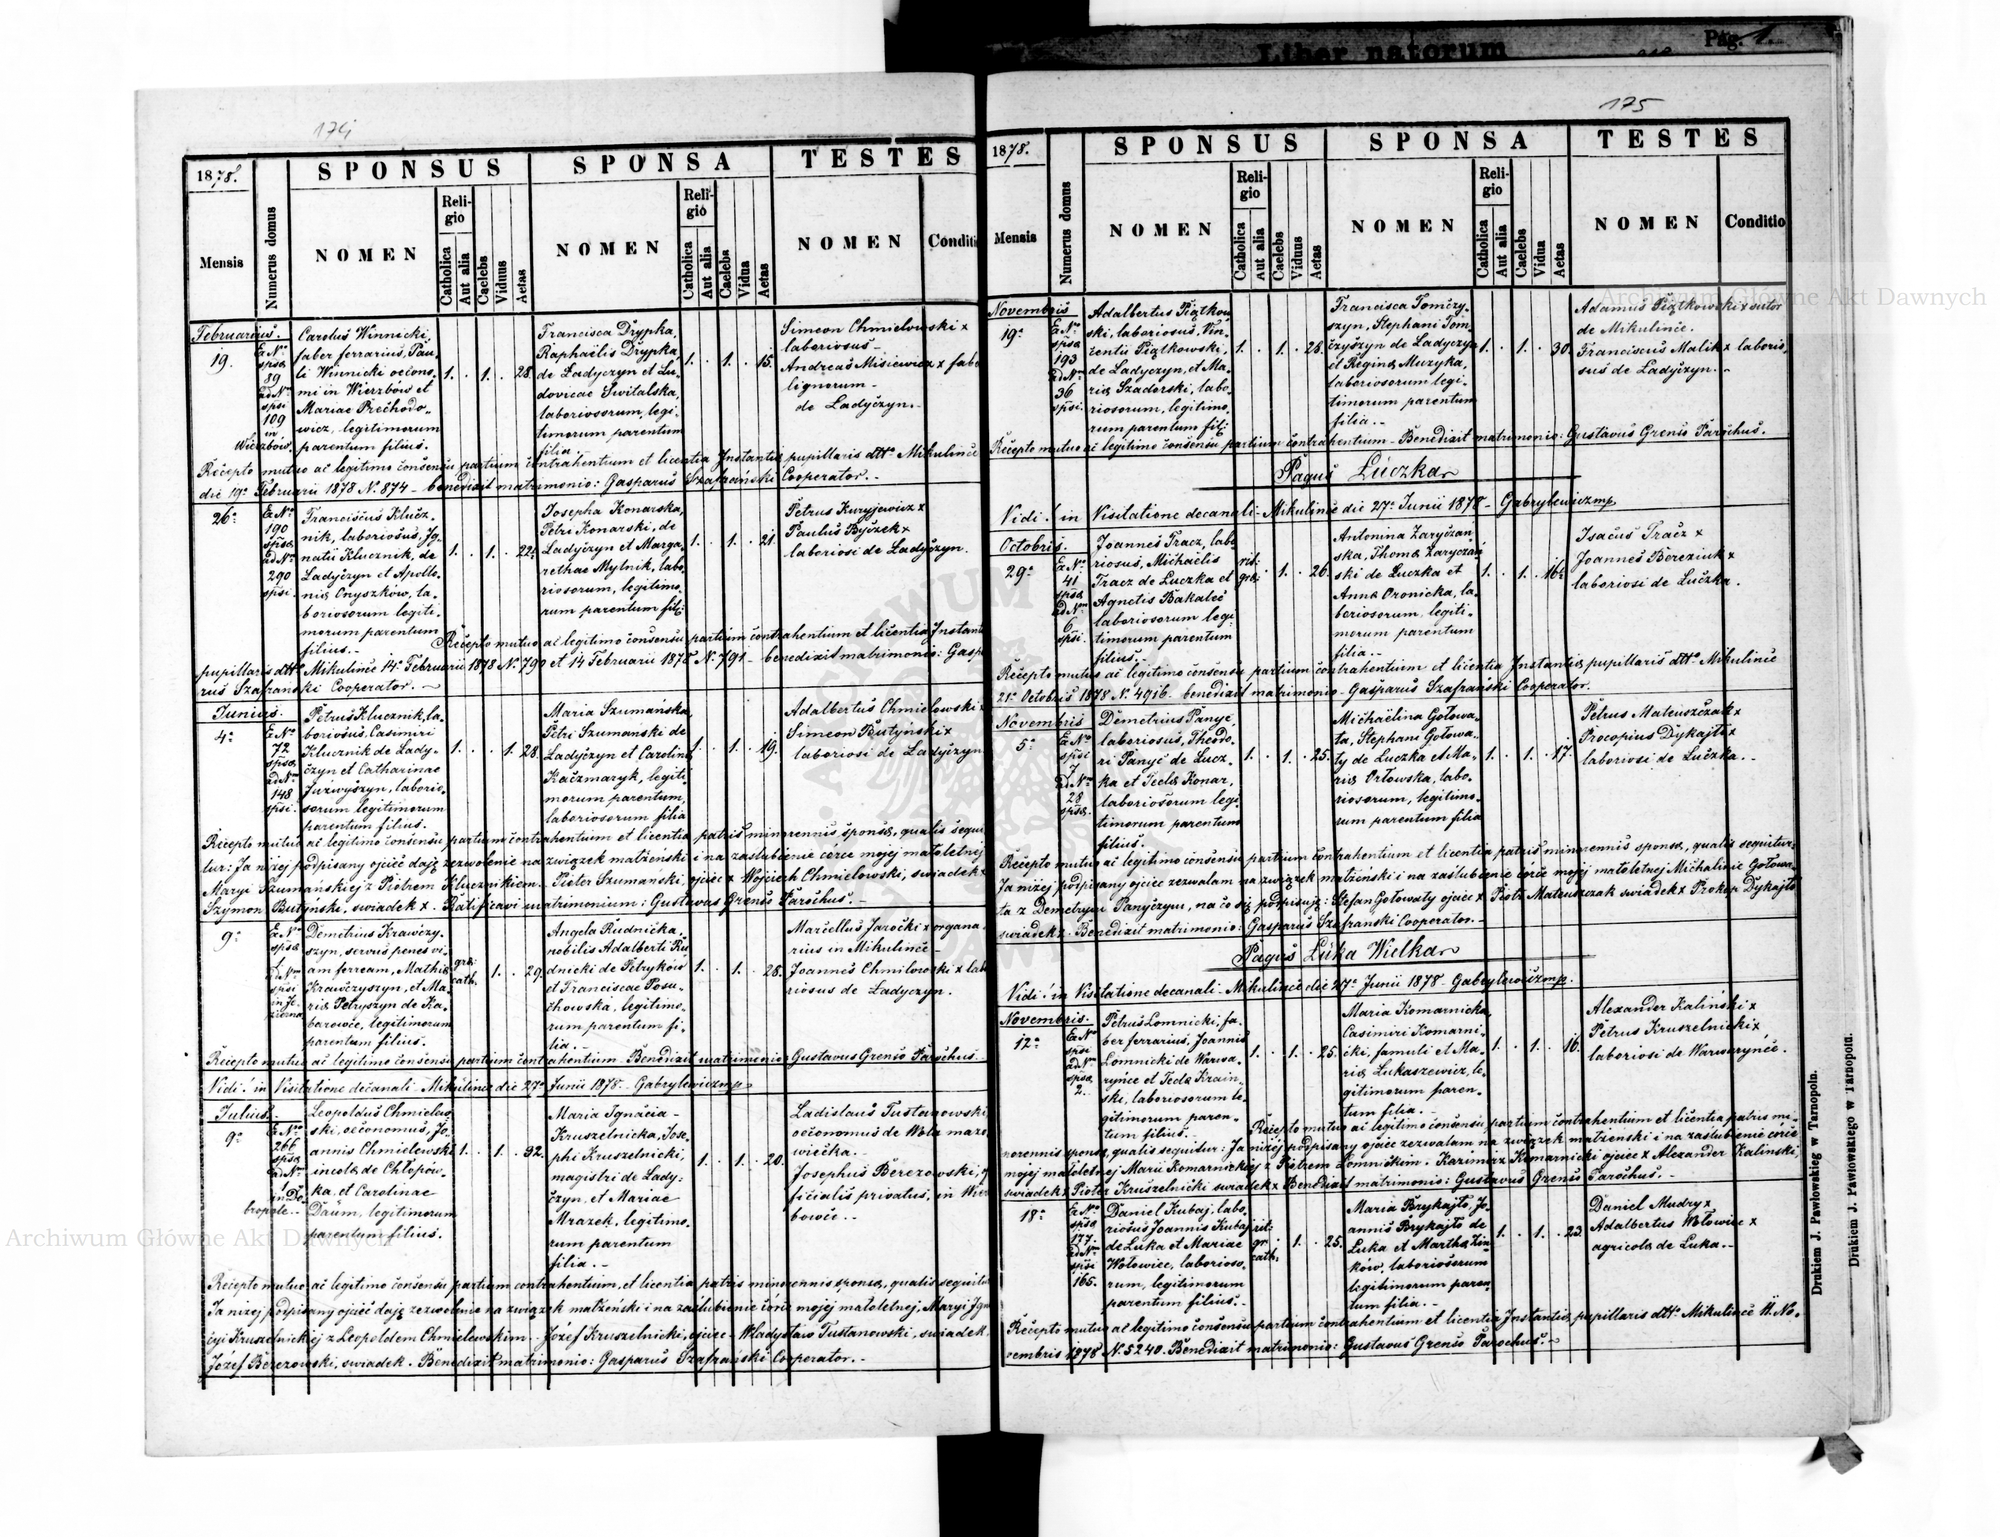 Liber natorum
Pag. 1.
174
1878.
SPONSUS
SPONSA
TESTES
Mensis
Numerus domus
NOMEN
Religio
Catholica
Aut alia
Caelebs
Viduus
Aetas
NOMEN
Religio
Catholica
Aut alia
Caelebs
Vidua
Aetas
NOMEN
Conditi
Februarius.
19.
Ex No
spsa
89
ad Nm
spsi
109
in
Wierzbów.
Carolus Winnicki,
faber ferrarius, Pau-
li Winnicki oecono-
mi in Wierzbów et
Mariae Prechodo-
wicz, legitimorum
parentum filius.
1. . 1. . 28.
Francisca Drypka,
Raphaëlis Drypka,
de Ladyczyn et Lu-
dovicae Switalska,
laboriosorum, legi-
timorum parentum
filia
1. . 1. . 15.
Simeon Chmielowski x
laboriosus -
Andreas Misiewicz x faber
lignorum -
de Ladyczyn. -
Recepto mutuo ac legitimo consensu partium contrahentium et licentia Instantia pupillaris dtto Mikulince
die 19a Februarii 1878 N. 874 - benedixit matrimonio: Gasparus Szafrański Cooperator. -
26a
Ex No
190
spsa
ad Nm
290
spsi
Franciscus Klucz-
nik, laboriosus, Ig-
natii Klucznik, de
Ladyczyn et Apollo-
nia Onyszków, la-
boriosorum legiti-
morum parentum
filius. -
1. . 1. . 22.
Josepha Konarska,
Petri Konarski, de
Ladyczyn et Marga-
rethae Mylnik, labo-
riosorum, legitimo-
rum parentum fil:
1. . 1. . 21.
Petrus Kuryjewicz x
Paulus Byczek x
laboriosi de Ladyczyn.
Recepto mutuo ac legitimo consensu partium contrahentium et licentia Instantia
pupillaris dtto Mikulince 14a Februarii 1878 No 790 et 14 Februarii 1878 No 791 - benedixit matrimonio: Gaspa-
rus Szafrański Cooperator. -
Junius.
4a
Ex No
72
spsa
ad Nm
148
spsi
Petrus Klucznik, la-
boriosus, Casimiri
Klucznik de Lady-
czyn et Catharinae
Juzwyszyn, laborio-
sorum legitimorum
parentum filius.
1. . . 1. 28.
Maria Szumańska,
Petri Szumański de
Ladyczyn et Carolina
Kaczmaryk, legiti-
morum parentum,
laboriosorum filia
1. . 1. . 19.
Adalbertus Chmielowski x
Simeon Butyński x
laboriosi de Ladyczyn
Recepto mutuo ac legitimo consensu partium contrahentium et licentia patris minorennis sponsa, qualis sequi-
tur: Ja niżej podpisany ojciec daję zezwolenie na związek małżeński i na zaślubienie córce mojej małoletniej
Maryi Szumańskiej z Piotrem Klucznikiem. Piotr Szumański, ojciec x Wojciech Chmielowski, swiadek x
Szymon Butyński, swiadek x. Ratificavi matrimonium: Gustavus Grenso Parochus. -
9a
Ex No
spsa
1
ad Nm
spsi
in Je-
zierna
Demetrius Krawczy-
szyn, servus penes vi-
am ferream, Mathia
Krawczyszyn, et Ma-
ria Petryszyn de Ka-
barowce, legitimorum
parentum filius.
gr.
cath. . 1. . 29.
Angela Rudnicka,
nobilis Adalberti Ru-
dnicki de Petryków
et Franciscae Posu-
chowska, legitimo-
rum parentum fi-
lia. -
1. . 1. . 28.
Marcellus Jarocki x organa-
rius in Mikulince -
Joannes Chmilowski x labo-
riosus de Ladyczyn.
Recepto mutuo ac legitimo consensu partium contrahentium - Benedixit matrimonio: Gustavus Grenso Parochus. -
Vidi! in Visitatione decanali - Mikulince die 27a Junii 1878 - Gabrylewicz mp
Julius.
9a
Ex No
266
spsa
ad Nm
1
in Do-
bropole.
Leopoldus Chmielew-
ski, oeconomus, Jo-
annis Chmielewski
incola de Chłopów-
ka, et Carolinae
Daum, legitimorum
parentum filius.
1. . 1. . 32.
Maria Ignacia -
Kruszelnicka, Jose-
phi Kruszelnicki,
magistri de Lady-
czyn, et Mariae
Mrazek, legitimo-
rum parentum
filia. -
1. . 1. . 20.
Ladislaus Tustanowski,
oeconomus de Wola mazo-
wiecka. -
Josephus Berezowski, of-
ficialis privatus, in Wierz-
bowce. -
Recepto mutuo ac legitimo consensu partium contrahentium, et licentia patris minorennis sponsa, qualis sequitur
Ja niżej podpisany ojciec daję zezwolenie na związek małżeński i na zaślubienie córce mojej małoletniej, Maryi Igna-
cyi Kruszelnickiej z Leopoldem Chmielewskim - Józef Kruszelnicki, ojciec - Władysław Tustanowski, swiadek
Józef Berezowski, swiadek. Benedixit matrimonio: Gasparus Szafrański Cooperator. -
175
1878.
SPONSUS
SPONSA
TESTES
Mensis
Numerus domus
NOMEN
Religio
Catholica
Aut alia
Caelebs
Viduus
Aetas
NOMEN
Religio
Catholica
Aut alia
Caelebs
Vidua
Aetas
NOMEN
Conditio
Novembris
19a
Ex No
spsa
193
ad Nm
36
spsi.
Adalbertus Piątkow-
ski, laboriosus, Vin-
centii Piątkowski,
de Ladyczyn, et Ma-
ria Szadorski, labo-
riosorum, legitimo-
rum parentum fil:
1. . 1. . 28.
Francisca Tomczy-
szyn, Stephani Tom-
czyszyn de Ladyczyn
et Regina Muzyka,
laboriosorum legi-
timorum parentum
filia. -
1. . 1. . 30.
Adamus Piątkowski x sutor
de Mikulince.
Franciscus Malik x laborio-
sus de Ladyczyn. -
Recepto mutuo ac legitimo consensu partium contrahentium - Benedixit matrimonio: Gustavus Grenso Parochus.
Pagus Łuczka
Vidi! in Visitatione decanali - Mikulince die 27a Junii 1878 - Gabrylewicz mp
Octobris.
29a
Ex No
41
spsa
ad Nm
6
spsi.
Joannes Tracz, labo-
riosus, Michaëlis
Tracz de Luczka et
Agnetis Bakalec
laboriosorum legi-
timorum parentum
filius. -
rit:
gr: . 1. . 26.
Antonina Zaryczań-
ska, Thoma Zaryczań-
ski de Luczka et
Anna Oronicka, la-
boriosorum, legiti-
morum parentum
filia. -
1. . 1. . 16
Isacus Tracz x
Joannes Bereziuk x
laboriosi de Luczka.
Recepto mutuo ac legitimo consensu partium contrahentium et licentia Instantia pupillaris dtto Mikulince
21a Octobris 1878 N. 4916 - benedixit matrimonio - Gasparus Szafrański Cooperator.
Novembris
5a
Ex No
spsi
7
ad Nm
28
spsa.
Demetrius Panyc,
laboriosus, Theodo-
ri Panyc de Lucz-
ka et Tecla Konar,
laboriosorum legi-
timorum parentum
filius. -
1. . 1. . 25.
Michaëlina Gołowa-
ta, Stephani Gołowa-
ty de Luczka et Ma-
ria Orłowska, labo-
riosorum, legitimo-
rum parentum filia
1. . 1. . 17.
Petrus Mateuszczak x
Procopius Dykajto x
laboriosi de Luczka. -
Recepto mutuo ac legitimo consensu partium contrahentium et licentia patris minorennis sponsa, qualis sequitur:
Ja niżej podpisany ojciec zezwalam na związek małżeński i na zaślubienie córce mojej małoletniej Michalinie Gołowa-
ta z Demetrym Panyczym, na co się podpisuję: Stefan Gołowaty ojciec x Piotr Mateuszczak swiadek x Prokop Dykajto
swiadek x. Benedixit matrimonio: Gasparus Szafrański Cooperator. -
Pagus Łuka Wielka
Vidi! in Visitatione decanali - Mikulince die 27a Junii 1878 - Gabrylewicz mp.
Novembris.
12a
Ex No
spsi
ad Nm
spsa
2.
Petrus Lomnicki, fa-
ber ferrarius, Joannis
Lomnicki de Warwa-
ryńce et Tecla Krain-
ski, laboriosorum le-
gitimorum paren-
tum filius. -
1. . 1. . 25.
Maria Komarnicka,
Casimiri Komarni-
cki, famuli et Ma-
ria Lukaszewicz, le-
gitimorum paren-
tum filia. -
1. . 1. . 16.
Alexander Kaliński x
Petrus Kruszelnicki x,
laboriosi de Warwaryńce.
Recepto mutuo ac legitimo consensu partium contrahentium et licentia patris mi-
norennis sponsa, qualis sequitur: Ja niżej podpisany ojciec zezwalam na związek małżeński i na zaślubienie córce
mojej małoletniej Marii Komarnickiej z Piotrem Lomnickim. Kazimierz Komarnicki ojciec x Alexander Kaliński,
swiadek x Piotr Kruszelnicki swiadek x Benedixit matrimonio: Gustavus Grenso Parochus. -
18a
Ex No
spsa
177.
ad Nm
spsi
165.
Daniel Kubaj, labo-
riosus Joannis Kubaj
de Luka et Mariae
Wołowiec, laborioso-
rum, legitimorum
parentum filius. -
rit:
gr:
cath: . 1. . 25.
Maria Brykajto, Jo-
annis Brykajto de
Luka et Martha Zin-
ków, laboriosorum
legitimorum paren-
tum filia. -
1. . 1. . 23.
Daniel Mudry x
Adalbertus Wołowiec x
agricola de Luka. -
Recepto mutuo ac legitimo consensu partium contrahentium et licentia Instantia pupillaris dtto Mikulince 11. No-
vembris 1878 N. 5240. Benedixit matrimonio: Gustavus Grenso Parochus. -
Drukiem J. Pawłowskieg w Tarnopoln.
Drukiem J. Pawłowskiego w Tarnopolu.
Archiwum Główne Akt Dawnych
Archiwum Główne Akt Dawnych